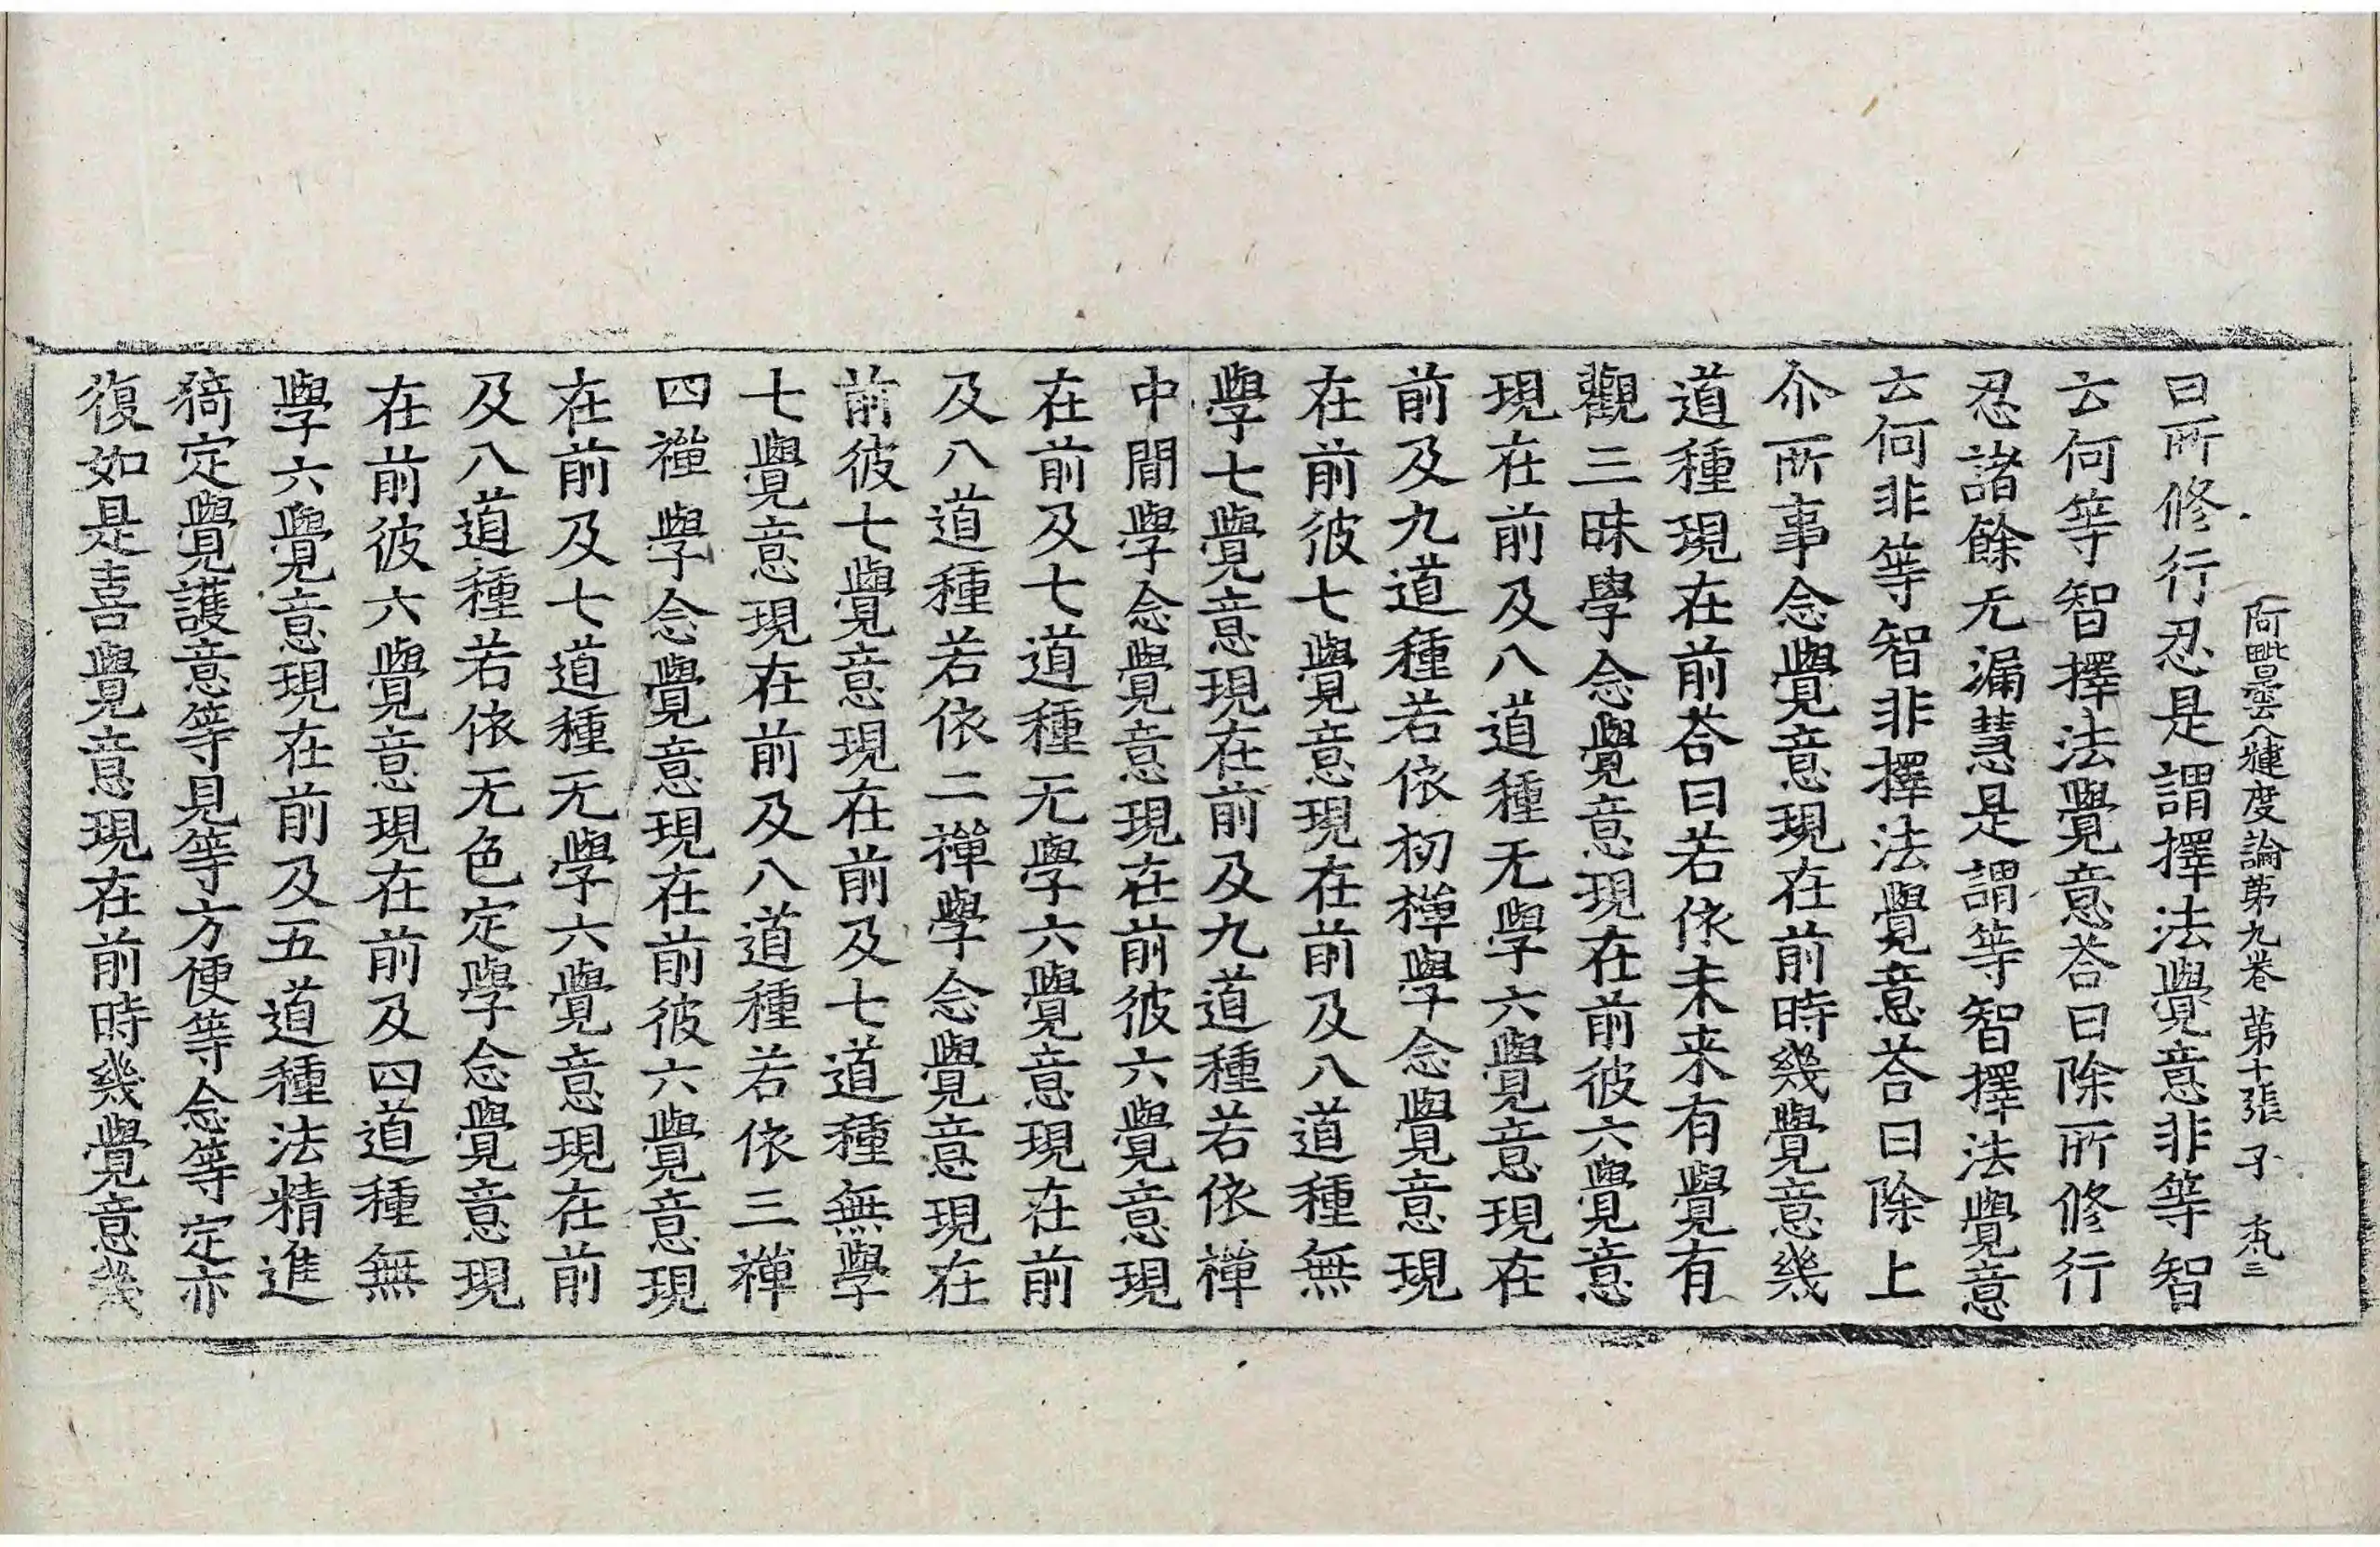 阿毗曇八犍度論第九卷 第十張 子
曰所修行忍是謂擇法覺意非等智
云何等智擇法覺意荅曰除所修行
忍諸餘无漏慧是謂等智擇法覺意
云何非等智非擇法覺意荅曰除上
尒所事念覺意現在前時幾覺意幾
道種現在前荅曰若依未来有覺有
觀三昧學念覺意現在前彼六覺意
現在前及八道種无學六覺意現在
前及九道種若依初禪學念覺意現
在前彼七覺意現在前及八道種無
學七覺意現在前及九道種若依禪
中間學念覺意現在前彼六覺意現
在前及七道種无學六覺意現在前
及八道種若依二禪學念覺意現在
前彼七覺意現在前及七道種無學
七覺意現在前及八道種若依三禪
四禪學念覺意現在前彼六覺意現
在前及七道種无學六覺意現在前
及八道種若依无色定學念覺意現
在前彼六覺意現在前及四道種無
學六覺意現在前及五道種法精進
猗定覺護意等見等方便等念等定亦
復如是喜覺意現在前時幾覺意幾